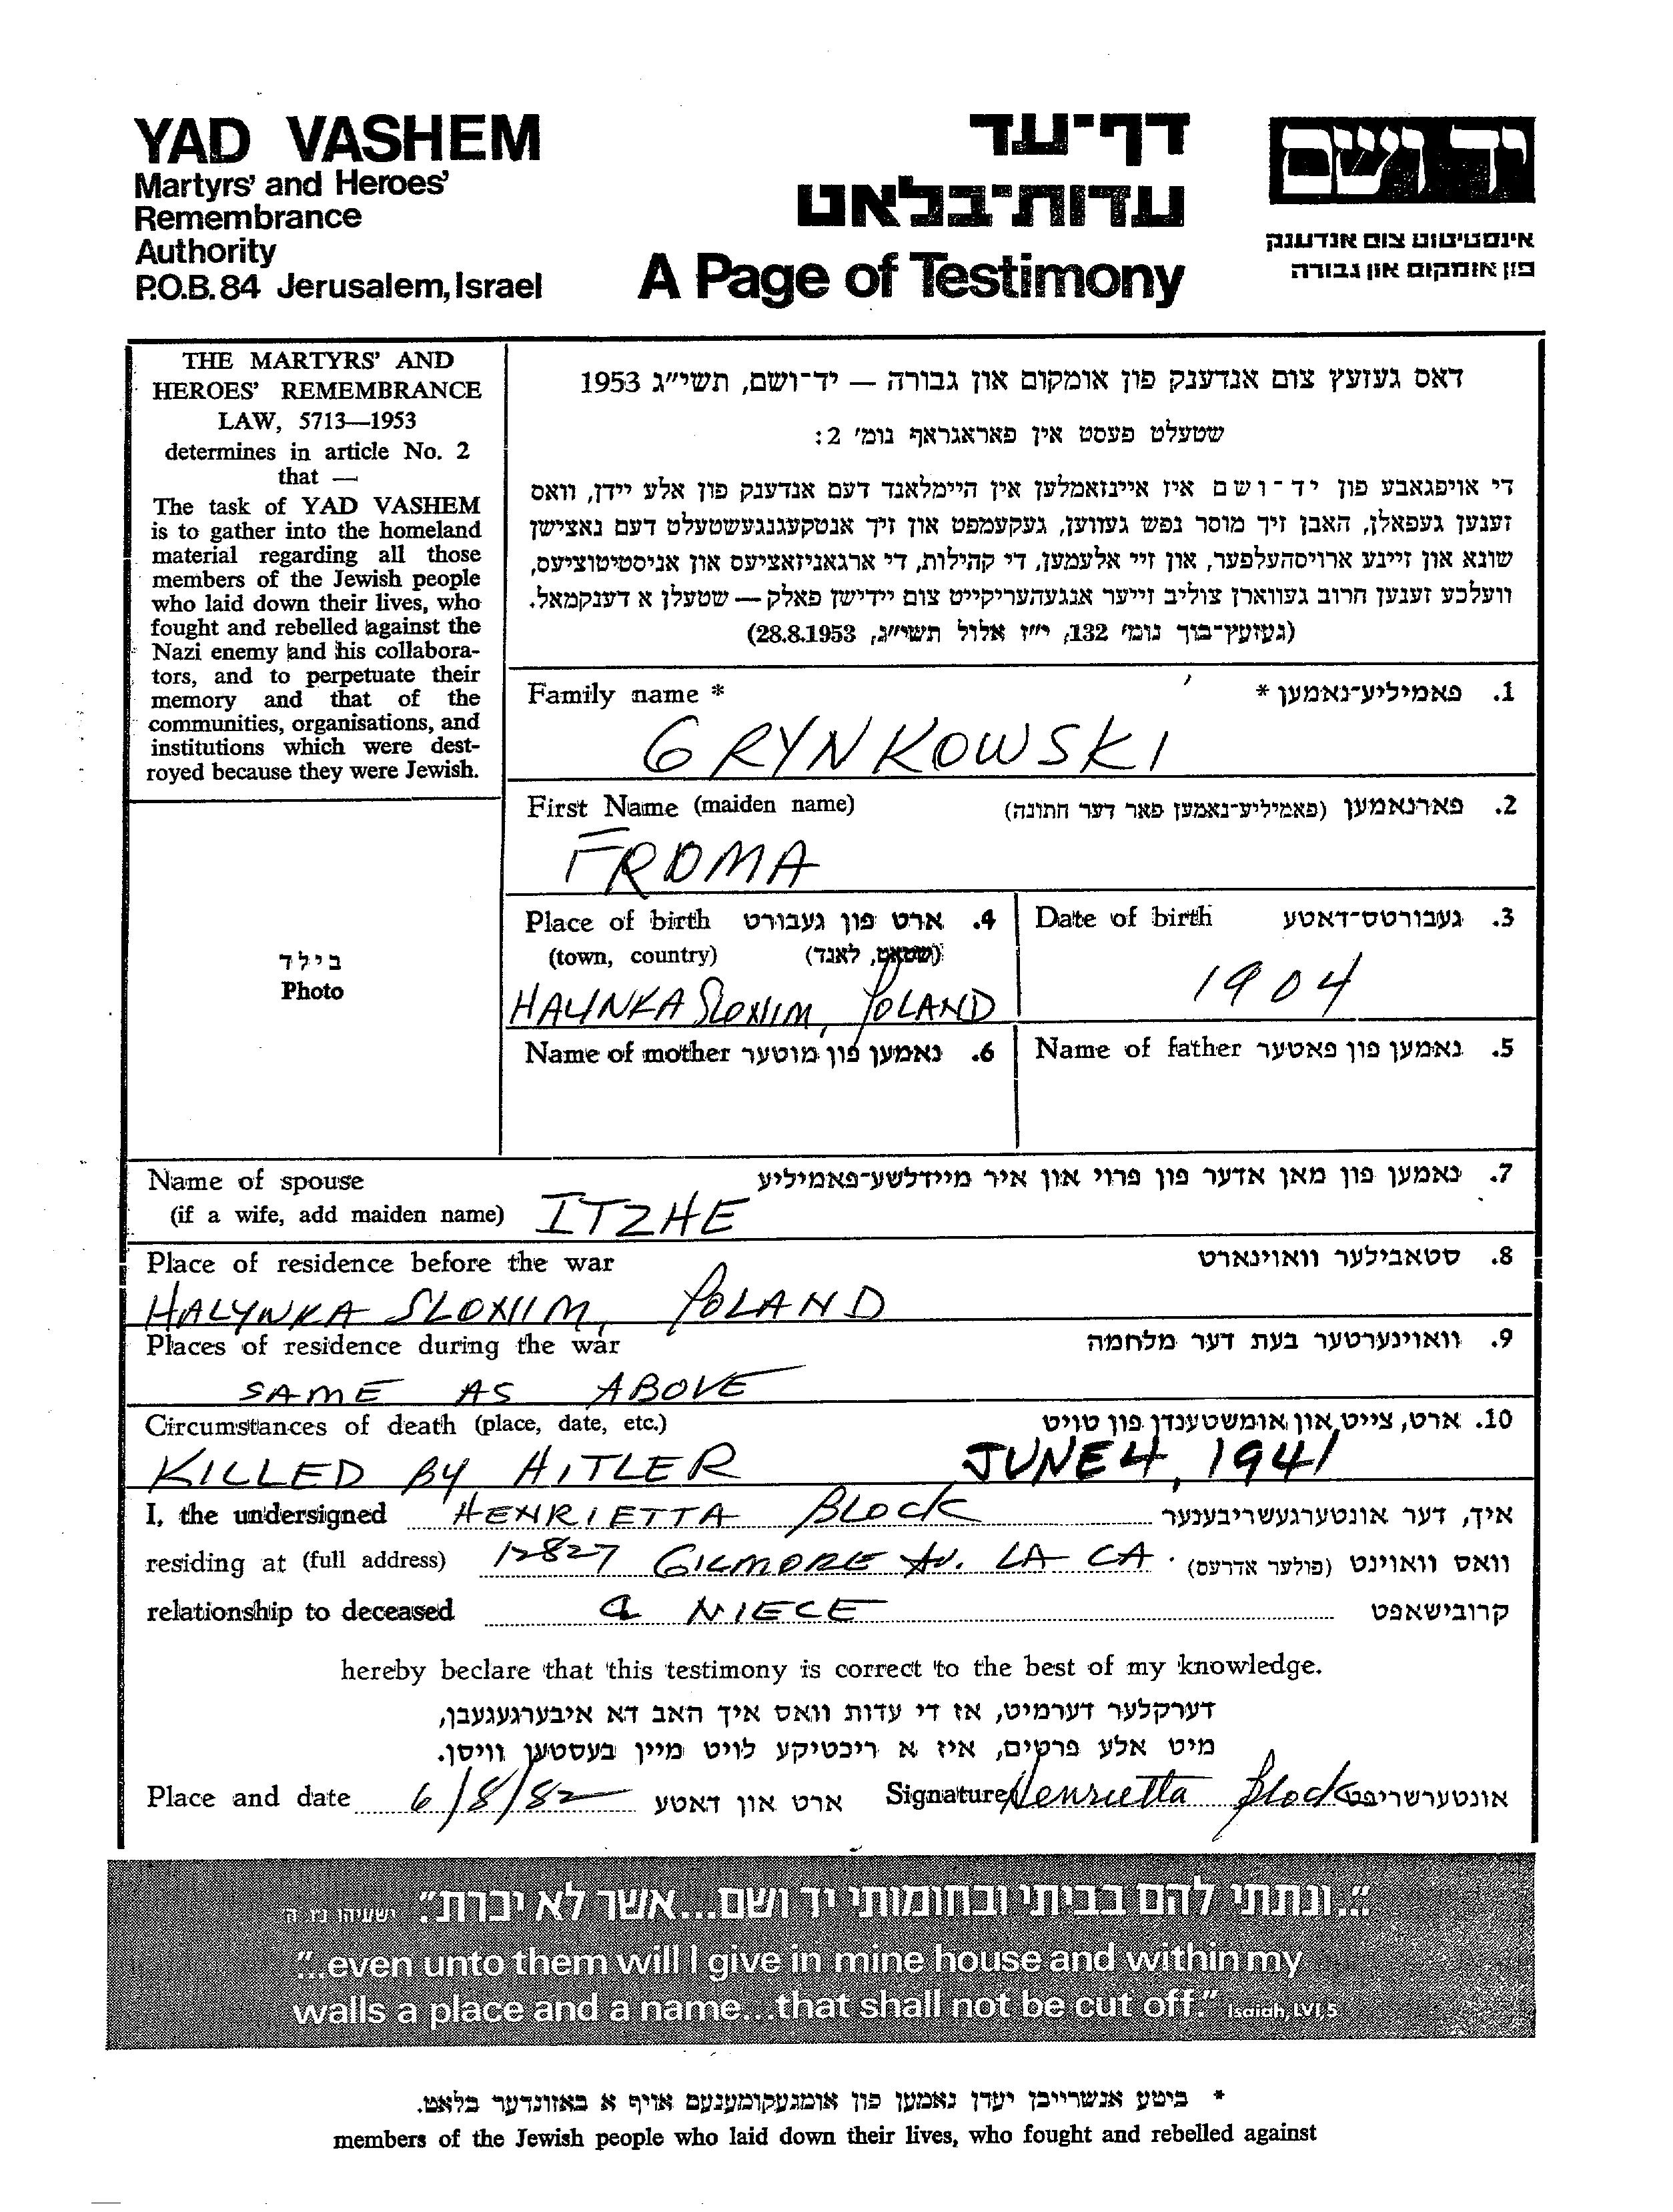 YAD VASHEM
Martyrs' and Heroes'
Remembrance
Authority
P.O.B. 84 Jerusalem, Israel
דף־עד
עדות־בלאט
A Page of Testimony
יד ושם
אינסטיטוט צום אנדענק
פון אומקום און גבורה
THE MARTYRS' AND
HEROES' REMEMBRANCE
LAW, 5713—1953
determines in article No. 2
that —
The task of YAD VASHEM
is to gather into the homeland
material regarding all those
members of the Jewish people
who laid down their lives, who
fought and rebelled against the
Nazi enemy and his collabora-
tors, and to perpetuate their
memory and that of the
communities, organisations, and
institutions which were dest-
royed because they were Jewish.
דאס געזעץ צום אנדענק פון אומקום און גבורה — יד־ושם, תשי״ג 1953
שטעלט פעסט אין פאראגראף נומ׳ 2:
די אויפגאבע פון יד־ושם איז איינזאמלען אין היימלאנד דעם אנדענק פון אלע יידן, וואס
זענען געפאלן, האבן זיך מוסר נפש געווען, געקעמפט און זיך אנטקעגנגעשטעלט דעם נאצישן
שונא און זיינע ארויסהעלפער, און זיי אלעמען, די קהילות, די ארגאניזאציעס און אניסטיטוציעס,
וועלכע זענען חרוב געווארן צוליב זייער אנגעהעריקייט צום יידישן פאלק — שטעלן א דענקמאל.
(געזעץ־בוך נומ׳ 132, י״ז אלול תשי״ג, 28.8.1953)
Family name * 1. פאמיליע־נאמען *
GRYNKOWSKI
First Name (maiden name) 2. פארנאמען (פאמיליע־נאמען פאר דער חתונה)
FROMA
Place of birth 4. ארט פון געבורט
(town, country) (שטאט, לאנד)
HALYNKA SLONIM, POLAND
Date of birth 3. געבורטס־דאטע
1904
Name of mother 6. נאמען פון מוטער
Name of father 5. נאמען פון פאטער
בילד
Photo
Name of spouse 7. נאמען פון מאן אדער פון פרוי און איר מיידלשע־פאמיליע
(if a wife, add maiden name) ITZHE
Place of residence before the war 8. סטאבילער וואוינארט
HALYNKA SLONIM, POLAND
Places of residence during the war 9. וואוינערטער בעת דער מלחמה
SAME AS ABOVE
Circumstances of death (place, date, etc.) 10. ארט, צייט און אומשטענדן פון טויט
KILLED BY HITLER JUNE 4, 1941
I, the undersigned HENRIETTA BLOCK איך, דער אונטערגעשריבענער
residing at (full address) 12827 GILMORE AV. LA CA. וואס וואוינט (פולער אדרעס)
relationship to deceased a NIECE קרובישאפט
hereby beclare that this testimony is correct to the best of my knowledge.
דערקלער דערמיט, אז די עדות וואס איך האב דא איבערגעגעבן,
מיט אלע פרטים, איז א ריכטיקע לויט מיין בעסטען וויסן.
Place and date 6/8/82 ארט און דאטע Signature Henrietta Block אונטערשריפט
"...ונתתי להם בביתי ובחומותי יד ושם...אשר לא יכרת". ישעיהו נו, ה
"...even unto them will I give in mine house and within my
walls a place and a name...that shall not be cut off." Isaiah, LVI, 5
* ביטע אנשרייבן יעדן נאמען פון אומגעקומענעם אויף א באזונדער בלאט.
members of the Jewish people who laid down their lives, who fought and rebelled against